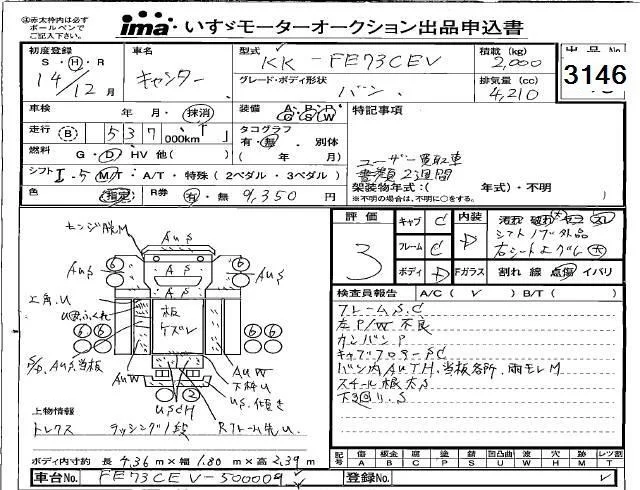 ④赤太枠内は必ず
ボールペンで
ご記入下さい。
ima いすゞモーターオークション出品申込書
初度登録 車名 型式 KK-FE73CEV 積載(kg) 2,000 出品No
S・H・R 14/12月 キャンター グレード・ボディ形状 バン. 排気量(cc) 4,210 3146
車検 年 月 抹消 装備 A/C P/S P/W 特記事項
走行 B 537 000km タコグラフ 有・無・別体
燃料 G・D・HV 他( ) ( 年 月) ユーザー買取車
シフト I-5 M/T・A/T・特殊(2ペダル・3ペダル) 書類2週間
架装物年式:( 年式)・不明
※不明の場合は、不明に○をする。
色 指定 R券 有・無 9,350 円
評価 3
キャブ C 内装 D
フレーム C シフトノブ外品
ボディ D Fガラス 割れ 線 点傷 イバリ
検査員報告 A/C( ✓ ) B/T( )
フレームS.C
左P/W不良
カンバンP
キャブフロアーSC
バン内AUTH.当板各所.雨モレM
スチール根太S
下3回り.S
ヒンジ脱M
AUS
AS
AUS
AUS
工具.U
板
ケズレ
AUW
AUW
下枠U
US.傾き
USCH
Rフレーム先U.
上物情報
トレクス ラッシング1段
記号 傷 A 板金 B 腐 C 塗 P 錆 S 凹凸曲 U 波 W 穴 H 跡 M レツ割 T
ボディ内寸約 長 4.36 m×幅 1.80 m×高 2.39 m
車台No. FE73CEV-500009 登録No.